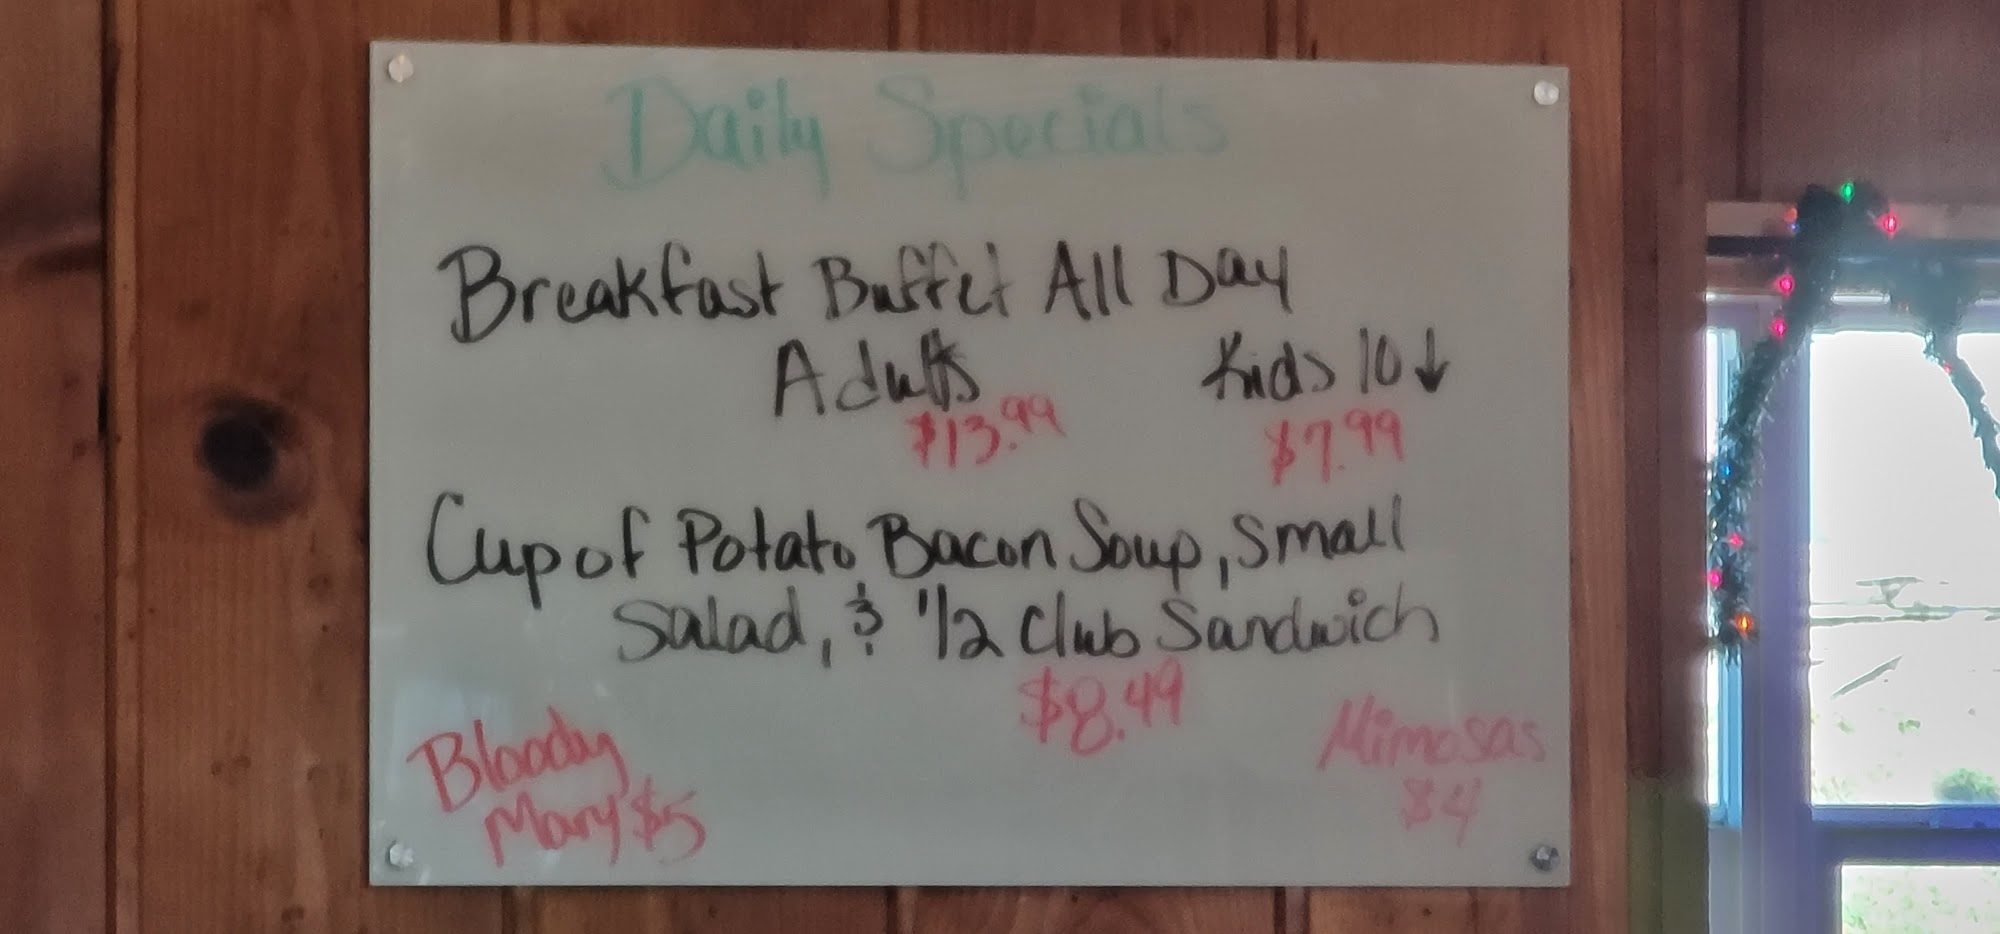 Daily Specials
Breakfast Buffet All Day
Adults Kids 10↓
$13.99 $7.99
Cup of Potato Bacon Soup, Small
Salad, & 1/2 Club Sandwich
$8.49
Bloody Mimosas
Mary $5 $4